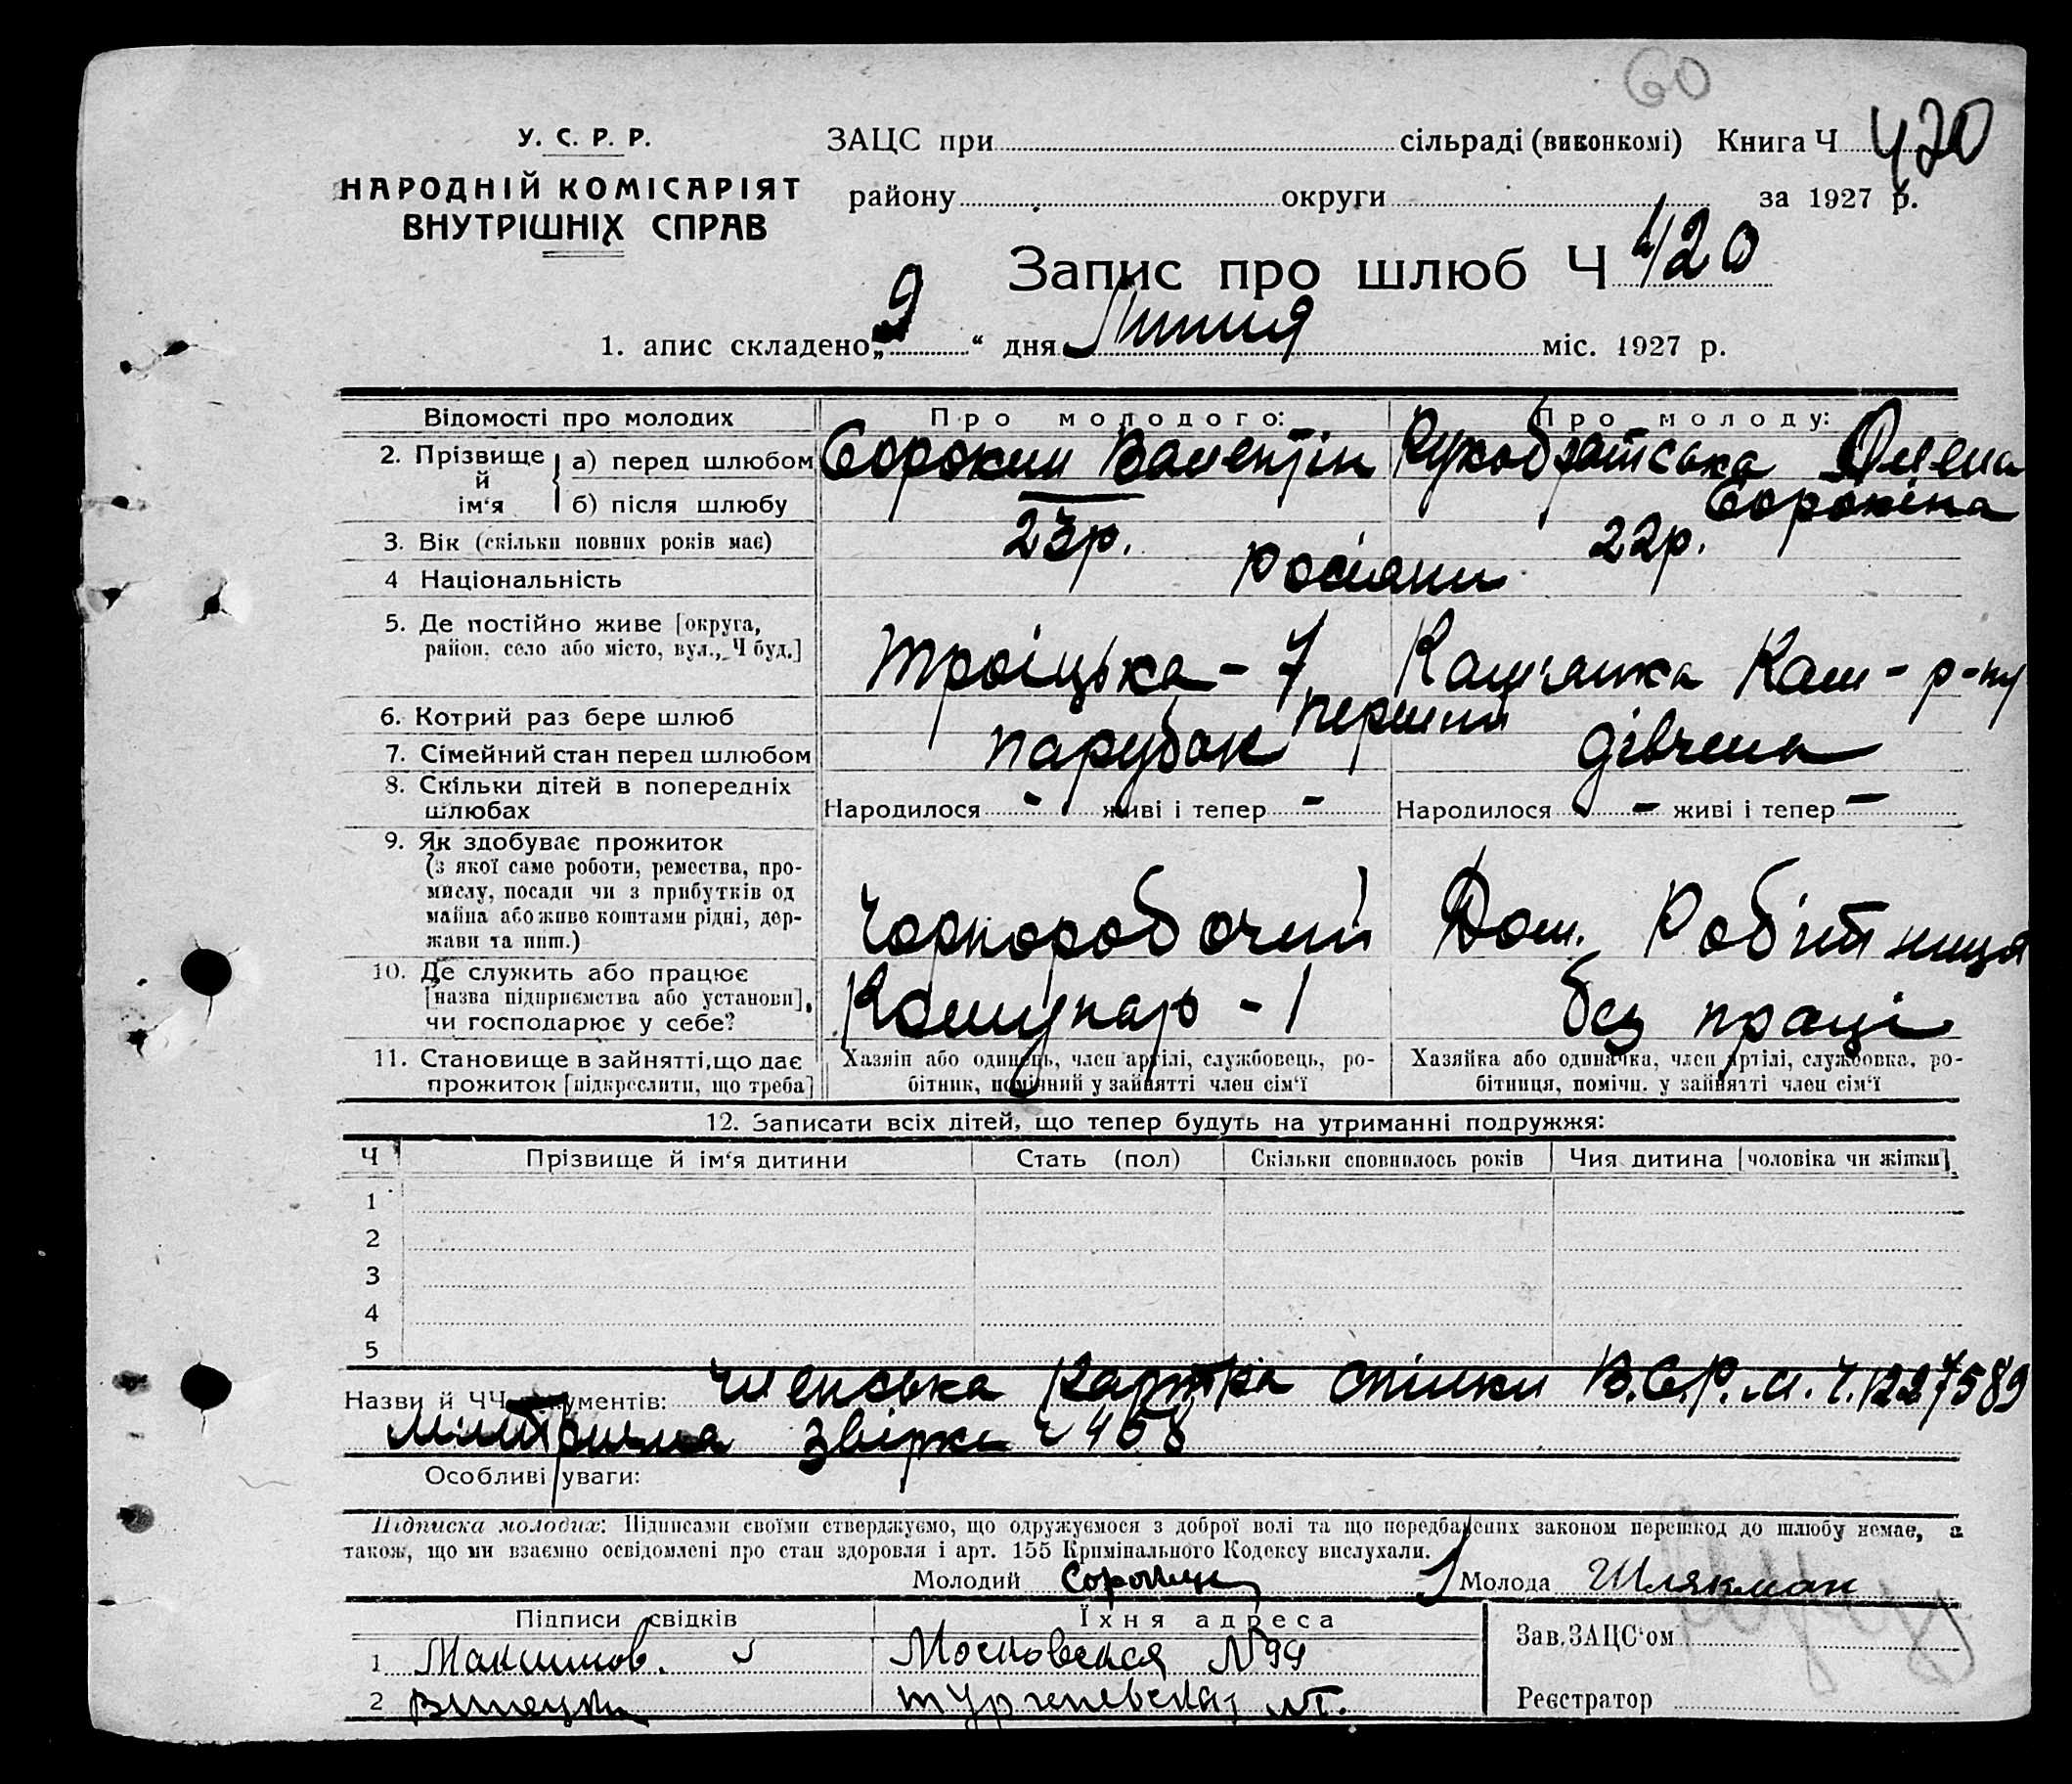 60
У. С. Р. Р.
НАРОДНІЙ КОМІСАРІЯТ
ВНУТРІШНІХ СПРАВ
ЗАЦС при сільраді (виконкомі) Книга Ч 420
району округи за 1927 р.
Запис про шлюб Ч 420
1. апис складено „9“ дня Липня міс. 1927 р.
Відомості про молодих
Про молодого:
Про молоду:
2. Прізвище й ім‘я
а) перед шлюбом
Сорокин Валентін
Олена
б) після шлюбу
Сорокіна
3. Вік (скільки повних років має)
23р.
22р.
4 Національність
Росіяни
5. Де постійно живе [округа,
район, село або місто, вул., Ч буд.]
Троіцька - 7
Кам'янка Кам - р-ну
6. Котрий раз бере шлюб
перший
7. Сімейний стан перед шлюбом
парубок
дівчина
8. Скільки дітей в попередніх
шлюбах
Народилося - живі і тепер -
Народилося - живі і тепер -
9. Як здобуває прожиток
(з якої саме роботи, ремества, про-
мислу, посади чи з прибутків од
майна або живе коштами рідні, дер-
жави та инш.)
Чорноробочий
Дом. Робітниця
10. Де служить або працює
[назва підприємства або установи],
чи господарює у себе?
Комунар - 1
без праці
11. Становище в зайнятті, що дає
прожиток [підкреслити, що треба]
Хазяін або одинець, член артілі, службовець, ро-
бітник, помічний у зайнятті член сім‘ї
Хазяйка або одиначка, член артілі, службовка, ро-
бітниця, помічн. у зайнятті член сім‘ї
12. Записати всіх дітей, що тепер будуть на утриманні подружжя:
Ч
Прізвище й ім‘я дитини
Стать (пол)
Скільки сповнилось років
Чия дитина [чоловіка чи жінки]
1
2
3
4
5
Назви й ЧЧ документів: Членська картка спілки В.С.Р.М. Ч.1227589
звірка ч 458
Особливі уваги:
Підписка молодих: Підписами своїми стверджуємо, що одружуємося з доброї волі та що передбачених законом перешкод до шлюбу немає, а
також, що ми взаємно освідомлені про стан здоровля і арт. 155 Кримінального Кодексу вислухали.
Молодий Сорокин
Молода Шлякман
Підписи свідків
Їхня адреса
1 Максимов.
Московская N 94
2
Тургеневская
Зав. ЗАЦС‘ом
Реєстратор